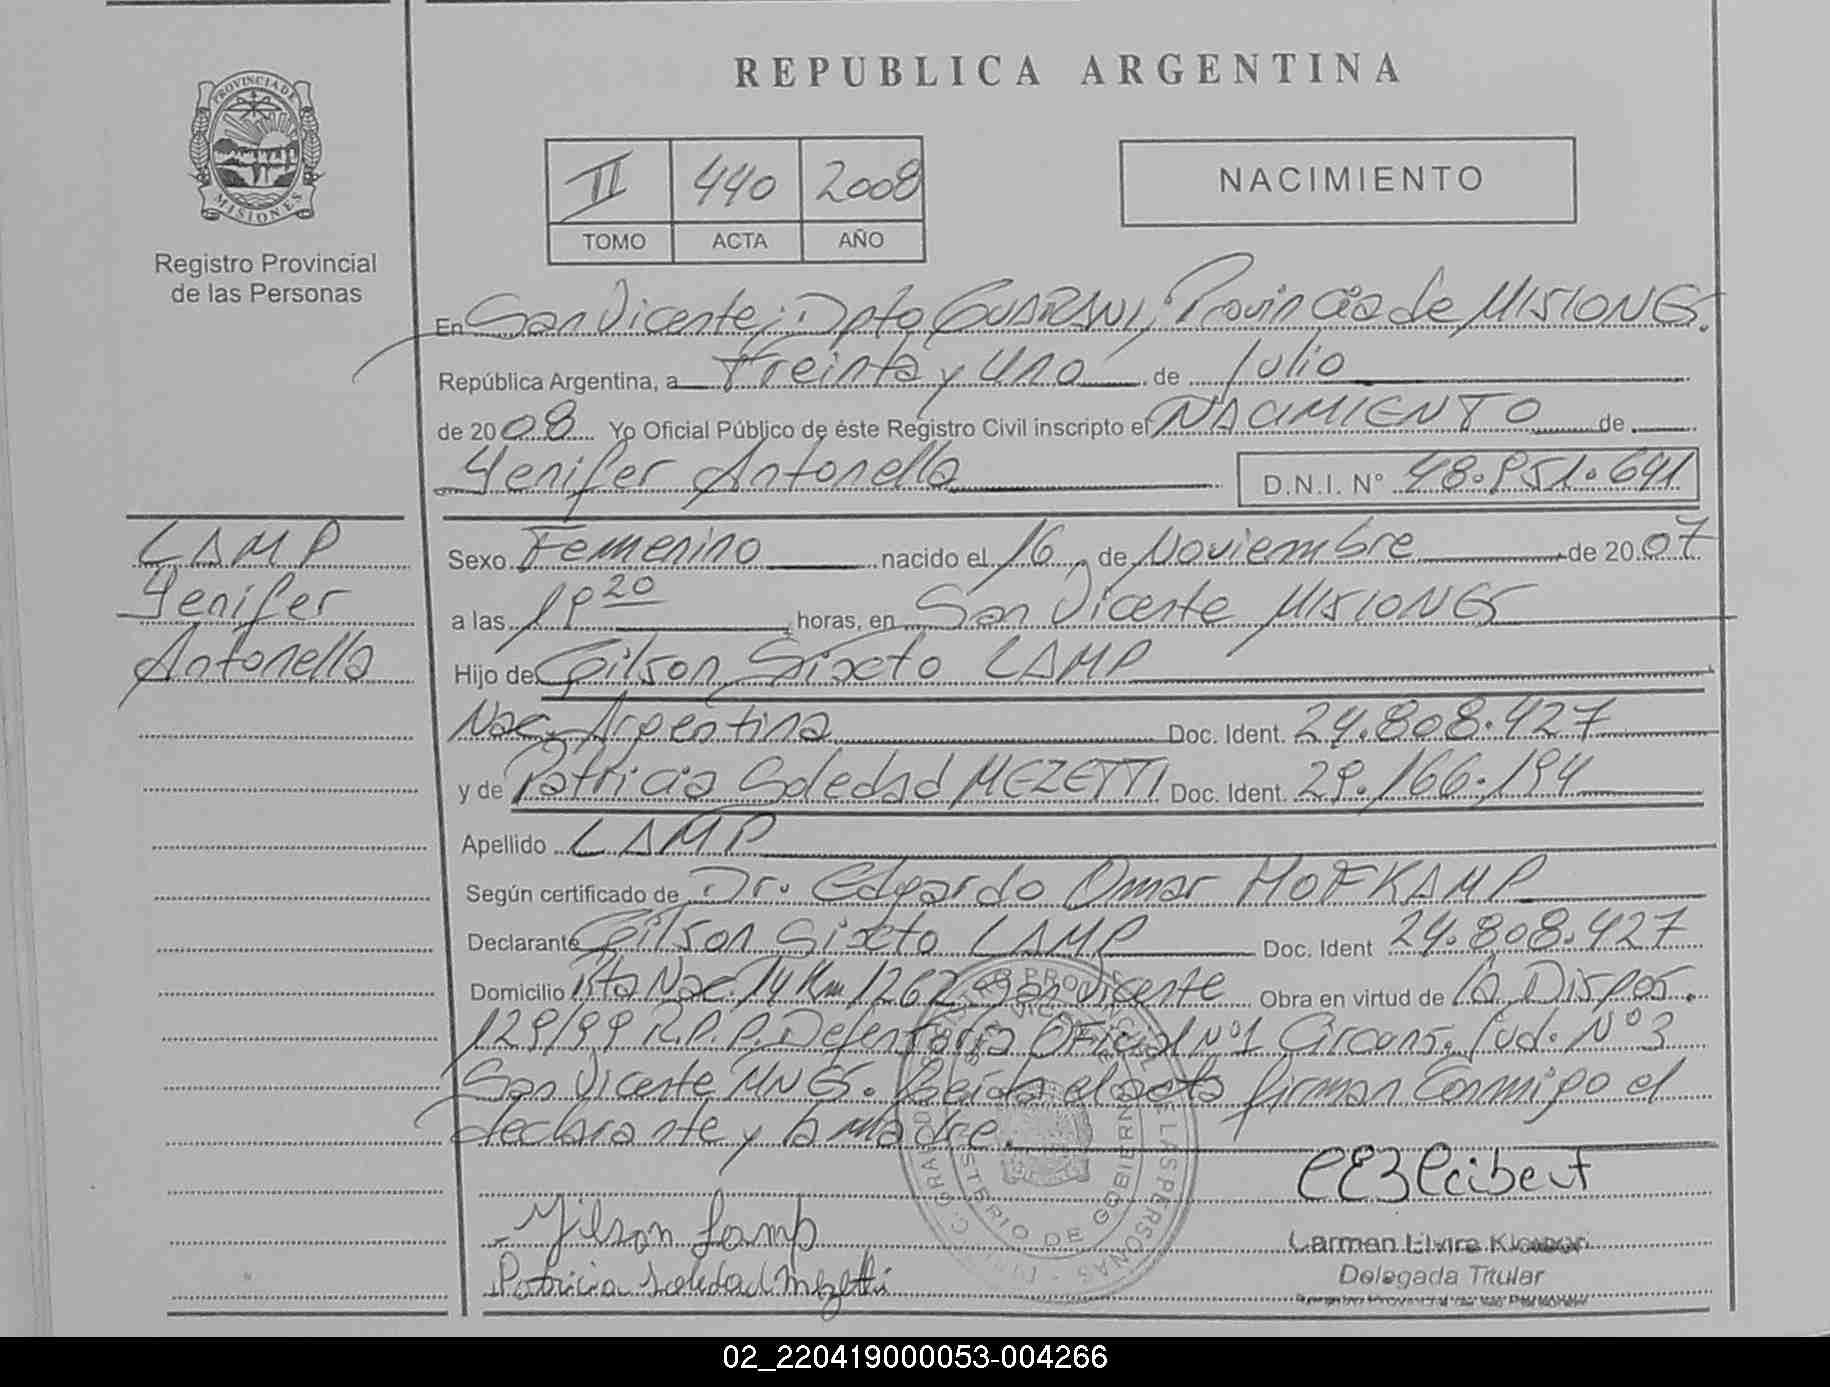 REPUBLICA ARGENTINA
PROVINCIA DE
MISIONES
Registro Provincial
de las Personas
II 440 2008
TOMO ACTA AÑO
NACIMIENTO
En San Vicente, Dpto GUARANI, Provincia de MISIONES.
República Argentina, a Treinta y uno de Julio
de 2008 Yo Oficial Público de éste Registro Civil inscripto el NACIMIENTO de
Yenifer Antonella D.N.I. Nº 48.951.641
LAMP
Yenifer
Antonella
Sexo Femenino nacido el 16 de Noviembre de 2007
a las 19 20 horas, en San Vicente MISIONES
Hijo de Gilson Sixto LAMP
Nac. Argentina Doc. Ident. 24.808.427
y de Patricia Soledad MEZETTI Doc. Ident. 29.166.194
Apellido LAMP
Según certificado de Dr. Edgardo Omar HOFKAMP
Declarante Gilson Sixto LAMP Doc. Ident 24.808.427
Domicilio Rta Nac. 14 Km 1262 San Vicente Obra en virtud de la Dispos.
129/99 R.P.P. Defensoria Oficial Nº1 Circuns. Jud. Nº 3
San Vicente MNES. Leída el acta firman conmigo el
declarante y la madre.
Gilson Lamp
Patricia Soledad Mezetti
Carmen Elvira
Delegada Titular
Registro Provincial de las Personas
MINISTERIO DE GOBIERNO
LAS PERSONAS
02_220419000053-004266